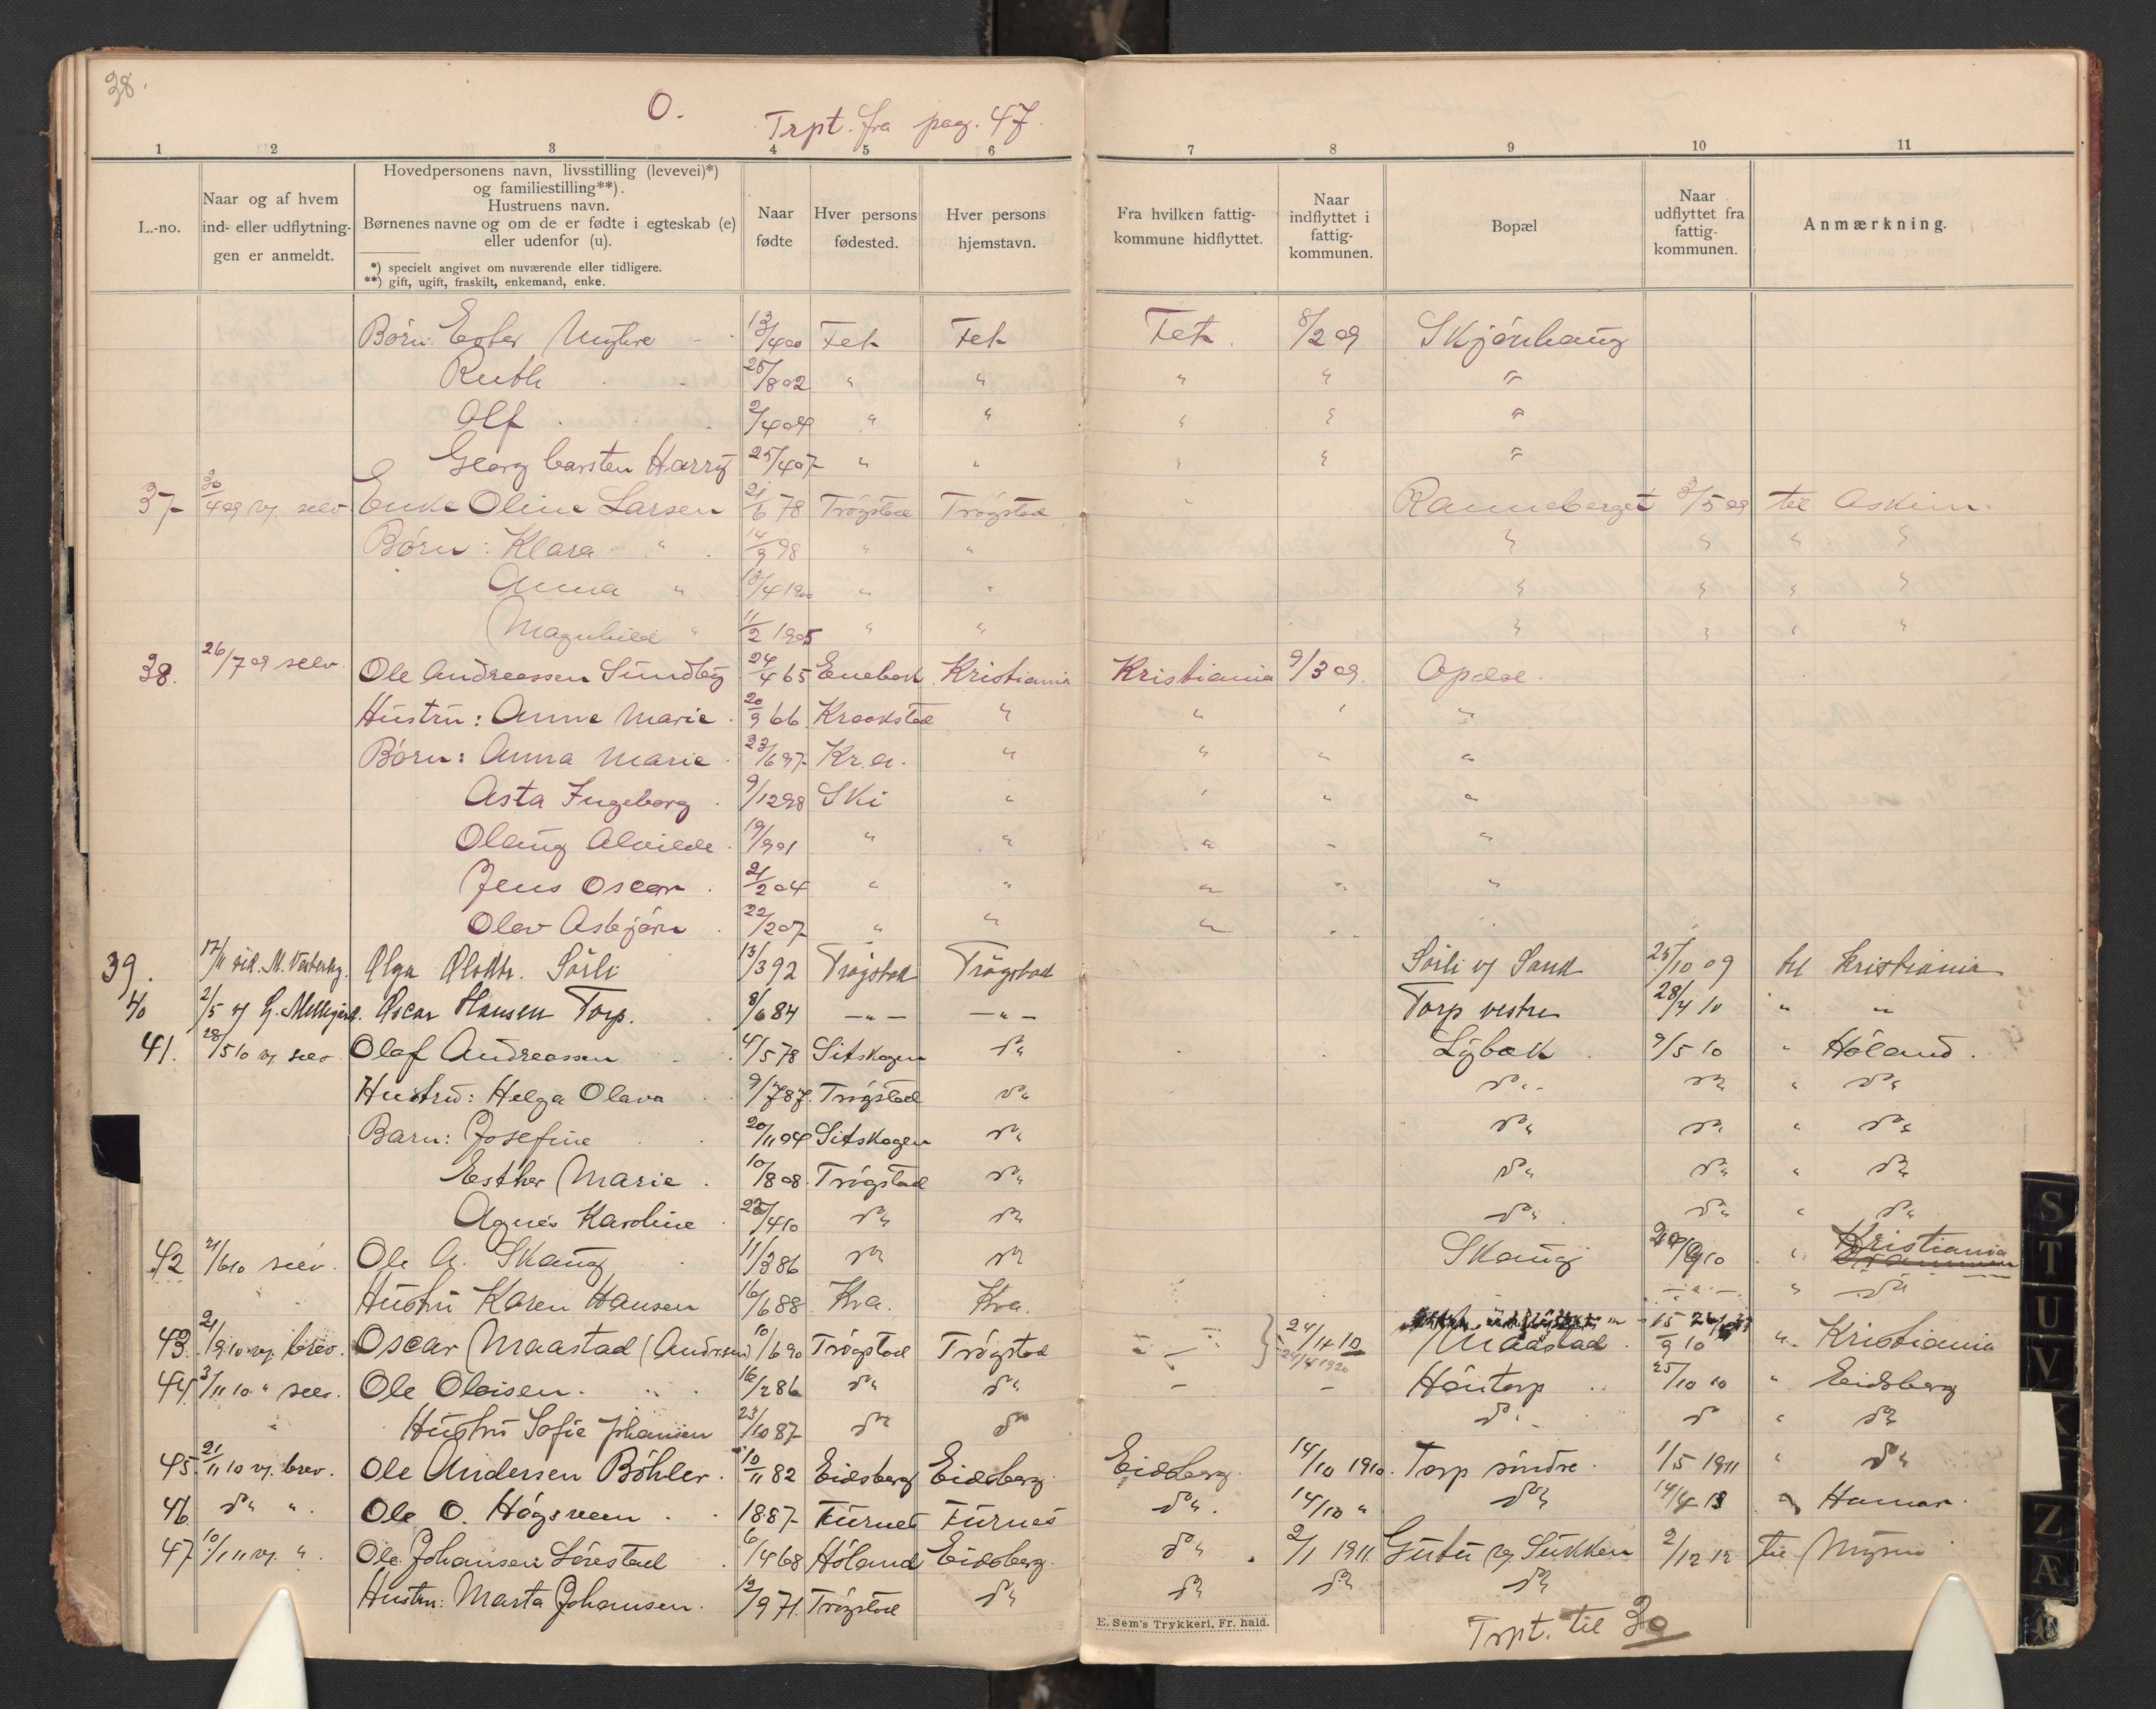 38.
O. Trpt. fra pag. 47.
1 2 3 4 5 6 7 8 9 10 11
L.-no.
Naar og af hvem ind- eller udflytningen er anmeldt.
Hovedpersonens navn, livsstilling (levevei)*)
og familiestilling**).
Hustruens navn.
Børnenes navne og om de er fødte i egteskab (e)
eller udenfor (u).
*) specielt angivet om nuværende eller tidligere.
**) gift, ugift, fraskilt, enkemand, enke.
Naar fødte
Hver persons fødested.
Hver persons hjemstavn.
Fra hvilken fattigkommune hidflyttet.
Naar indflyttet i fattigkommunen.
Bopæl
Naar udflyttet fra fattigkommunen.
Anmærkning.
Børn: Ester 13/4 00 Fet Fet Fet. 8/2 09 Skjønhaug
Ruth 25/8 02 " " " " "
Olf 2/4 04 " " " " "
Georg Carsten Harry 25/4 07 " " " " "
37 30/4 09 v. selv Enke Oline Larsen 21/6 78 Trøgstad Trøgstad " Ranneberget 3/5 09 til Askim.
Børn: Klara " 14/9 98 " " " " " "
Anna " 13/4 1900 " " " " " "
Magnhild " 11/2 1905 " " " " " "
38. 26/7 09 selv. Ole Andreassen Sundby 24/4 65 Enebak Kristiania Kristiania 9/3 09. Opdse.
Hustru: Anne Marie. 20/9 66 Kraakstad " " " "
Børn: Anna Marie. 23/6 97 Kr.a. " " " "
Asta Ingeborg. 9/12 98 Ski " " " "
Olaug Alvilde. 19/9 01 " " " " "
Jens Oscar. 21/2 04 " " " " "
Olav Asbjørn. 22/2 07 " " " " "
39. 17/11 Olga Olsdtr. Sørli 13/3 92 Trøgstad Trøgstad Sørli v/ Sand 25/10 09 til Kristiania
40 2/5 v/ Oscar Hansen Torp. 8/6 84 — " — — " — Torp vestre 28/4 10 " "
41. 28/5 10 v. selv. Olaf Andreassen 4/5 78 Sitskogen d" Lybæk 9/5 10 " Høland.
Hustru: Helga Olava 9/7 87. Trøgstad d" d" d" " d"
Barn: Josefine 20/11 04 Sitskogen d" d" d" " d"
Esther Marie. 10/8 08. Trøgstad d" d" d" " d"
Agnes Karoline. 25/4 10 d" d" d" d" " d"
42 21/6 10 selv. Ole A. Skaug 11/3 86 d" d" Skaug 9 10 " Kristiania
Hustru Karen Hansen 16/6 88. Kra. Kra. — " — " d"
43. 21/9 10 v. brev. Oscar Maastad (Andrsen) 10/6 90 Trøgstad Trøgstad 24/11 10 Maastad. 15/9 10 " Kristiania
24/4 1920
44. 3/11 10 " selv. Ole Olaisen. 16/2 86 d" d" — — Høitorp 25/10 10 " Eidsberg
Hustru Sofie Johansen 23/10 87 d" d" d" d " d"
45. 21/11 10 v. brev. Ole Andersen Bøhler. 10/11 82 Eidsberg Eidsberg Eidsberg. 14/10 1910. Torp søndre. 1/5 1911 " d"
46. d" " Ole O. Høgsveen 1887 Furnes Furnes d". 14/10 " d" 14/4 13 " Hamar.
47. 10/1 11 v. " Ole Johansen Lørestad. 6/4 68 Høland Eidsberg. d" 2/1 1911. 2/12 12 til Mysen
Hustru: Marta Johansen. 12/9 71. Trøgstad d" d" d" d"
E. Sem's Trykkeri, Fr. hald.
Trpt. til 39
S
T
U
V
Z
Æ